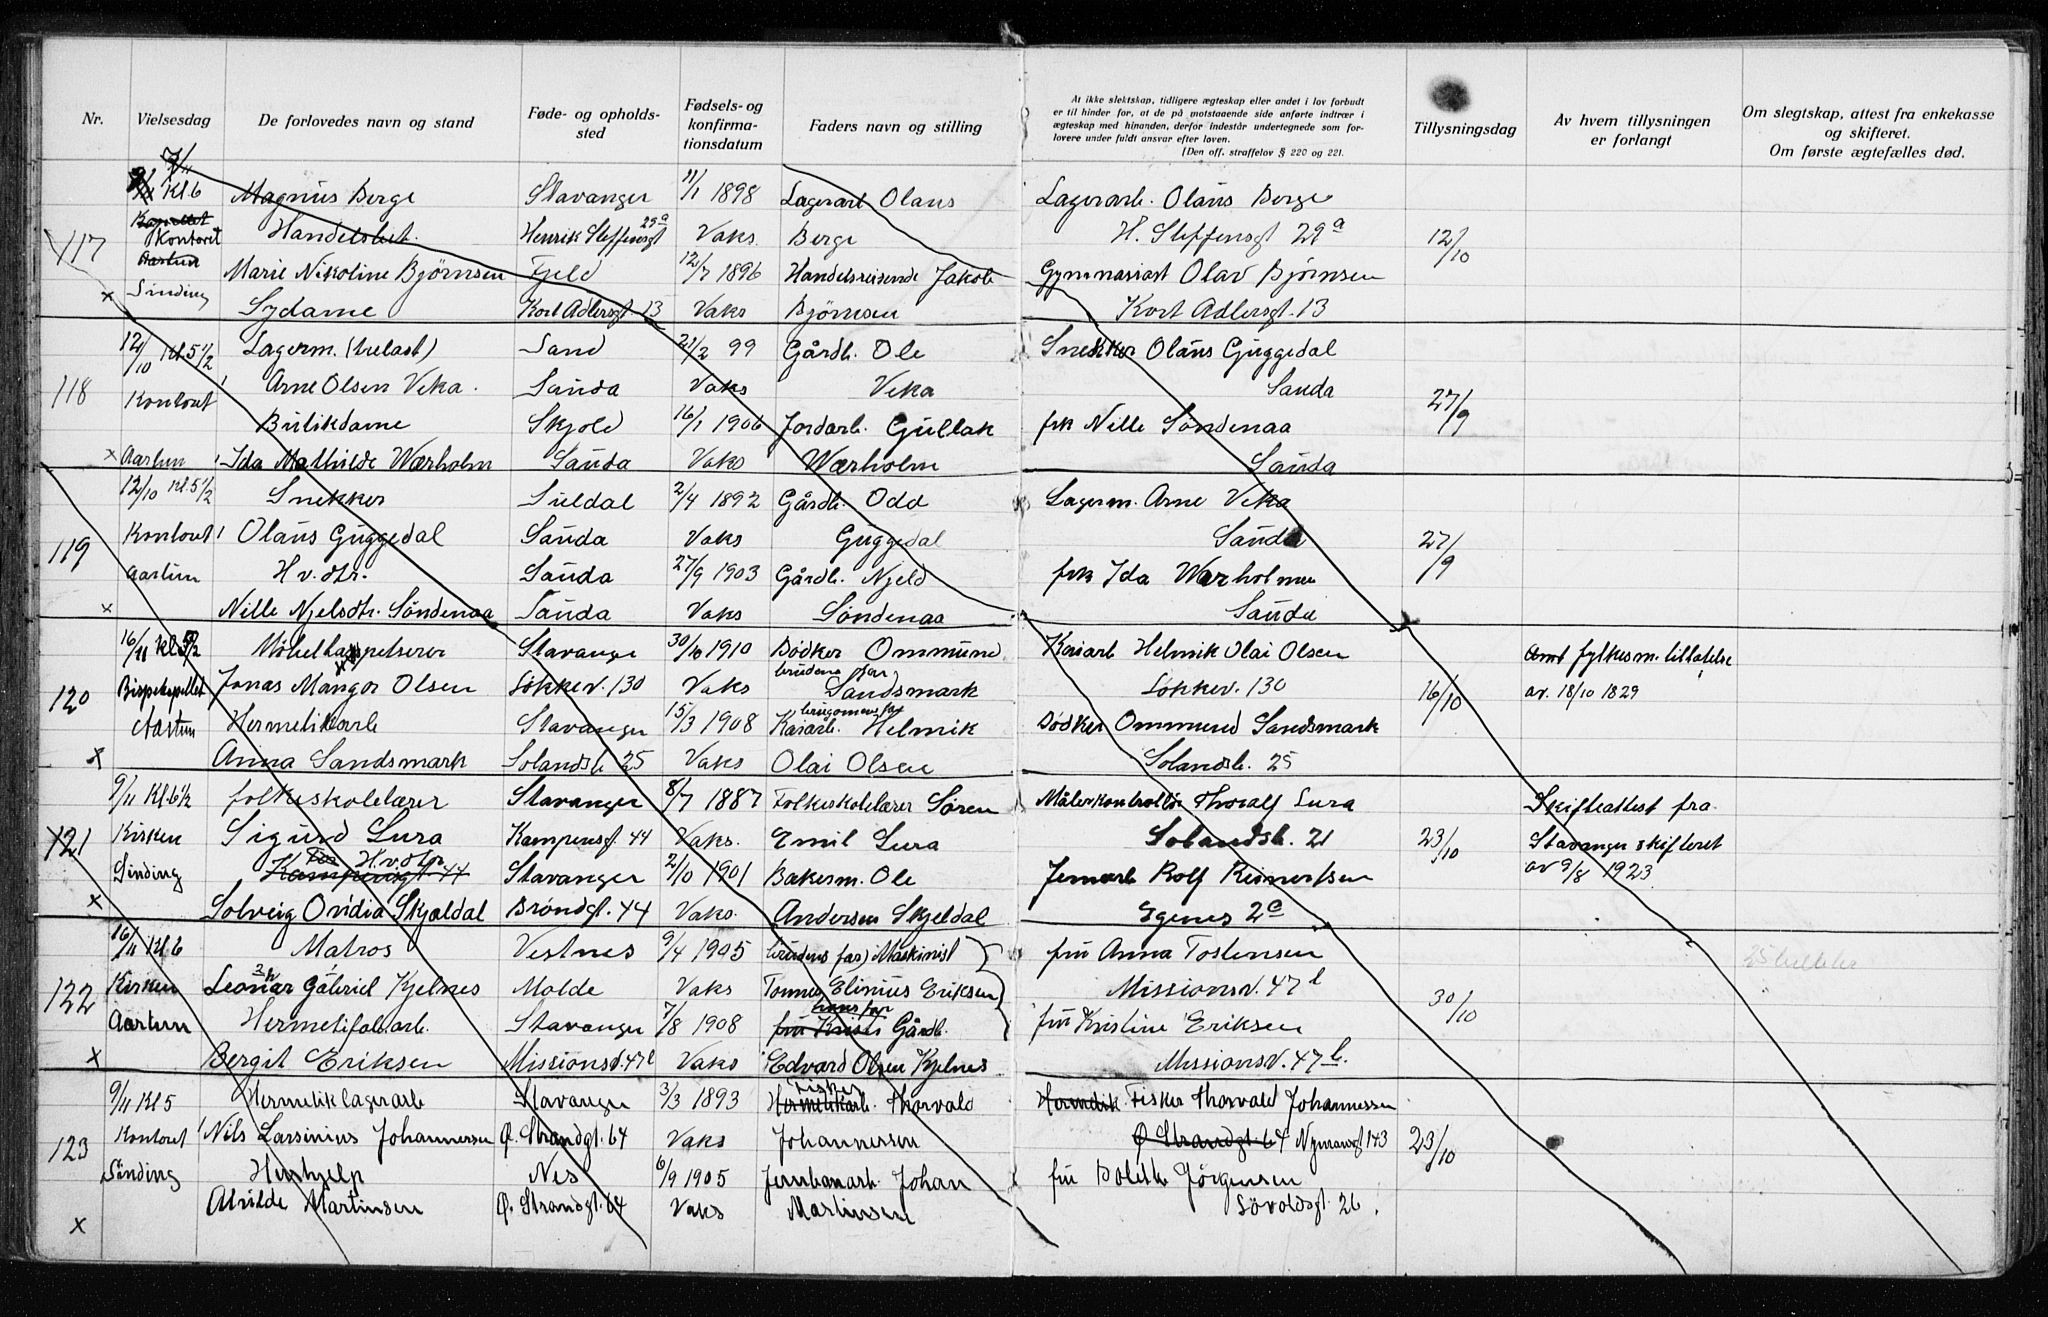 Nr.
Vielsesdag
De forlovedes navn og stand
Føde- og opholds-
sted
Fødsels- og
konfirma-
tionsdatum
Faders navn og stilling
At ikke slektskap, tidligere ægteskap eller andet i lov forbudt
er til hinder for, at de på motstaaende side anførte indtrær i
ægteskap med hinanden, derfor indestår undertegnede som for-
lovere under fuldt ansvar efter loven.
[Den off. straffelov § 220 og 221.
Tillysningsdag
Av hvem tillysningen
er forlangt
Om slegtskap, attest fra enkekasse
og skifteret.
Om første ægtefælles død.
7/11
Kl 6 Magnus Berge Stavanger 11/1 1898 Lagerarb Olaus Lagerarb. Olaus Berge
Kapellet
117 Kontoret Handelsbet. Henrik Steffensgt 29a Vaks. Berge H. Steffensgt 29a 12/10
Aastun Marie Nikoline Bjørnsen Fjeld 12/7 1896 Handelsreisende Jakob Gymnasiast Olav Bjørnsen
x Sinding Sydame Kort Adlersgt. 13 Vaks Bjørnsen Kort Adlersgt. 13
12/10 Kl. 5 1/2 Lagerm. (trelast) Sand 21/2 99 Gårdb. Ole Snekker Olaus Guggedal
118 Kontoret Arne Olsen Veka. Sauda Vaks Veka Sauda 27/9
Butikdame Skjold 16/1 1906 Jordarb. Gullak frk Nille Søndenaa
x Aastun Ida Mathilde Wærholm Sauda Vaks Wærholm Sauda
12/10 Kl. 5 1/2 Snekker Suldal 2/4 1892 Gårdb. Odd Lagerm. Arne Veka
119 Kontoret Olaus Guggedal Sauda Vaks Guggedal Sauda 27/9
Aastun H v. dtr. Sauda 27/9 1903 Gårdb. Njeld frk Ida Wærholm
x Nille Njelsdtr. Søndenaa Sauda Vaks Søndenaa Sauda
16/11 Kl 5 1/2 Møbeltappetserer Stavanger 30/10 1910 Bødker Ommund Kaiarb Helmik Olai Olsen Amt fylkesm. tillatelse
brudens far
120 Bispekapellet Jonas Mangor Olsen Løkkev. 130 Vaks Sandsmark Løkkev. 130 16/10 av. 18/10 1829
brudgomens far
Aastun Hermetikarb Stavanger 15/3 1908 Kaiarb. Helmik Bødker Ommund Sandsmark
x Anna Sandsmark Solandsb. 25 Vaks Olai Olsen Solandsb. 25
9/11 Kl. 6 1/2 folkeskolelærer Stavanger 8/7 1887 Folkeskolelærer Søren Målerkontrollør Thoralf Lura Skifteattest fra
121 Kirken Sigurd Lura Kampensgt. 44 Vaks. Emil Lura Solandsb. 21 23/10 Stavanger skifteret
H v. dtr.
Sinding Kampensgt 44 Stavanger 2/10 1901 Bakerm. Ole Jernarb Rolf Reinertsen av 9/8 1923
x Solveig Ovidia Skjældal Brøndgt. 44 Vaks. Andersen Skjeldal Egenes 2a
16/11 Kl. 6 Matros Vestnes 9/4 1905 brudens far) Maskinist fru Anna Tostensen
122 Kirken Leonar Gabriel Kjelnes Molde Vaks Tonnes Elinius Eriksen Missionsv. 47b 30/10
hans far
Aastun Hermetikfab.arb. Stavanger 7/8 1908 Gårdb. fru Kristine Eriksen
x Bergit Eriksen Missionsv. 47b Vaks Edvard Olsen Kjelnes Missionsv. 47b.
Fisker
9/11 Kl 5 Hermetik lagerarb Stavanger 3/3 1893 Hermetikarb. Thorvald Fisker Thorvald Johannessen
123 Kontoret Nils Larsinius Johannessen Ø. Strandgt. 64 Vaks Johannessen Ø Strandgt. 64 Nymansgt 143 23/10
Sinding Hushjelp Nes 6/9 1905 Jernbanarb. Johan fru Bolette Jørgensen
x Alvilde Martinsen Ø. Strandgt. 64 Vaks Martinsen Søvoldsgt. 26.